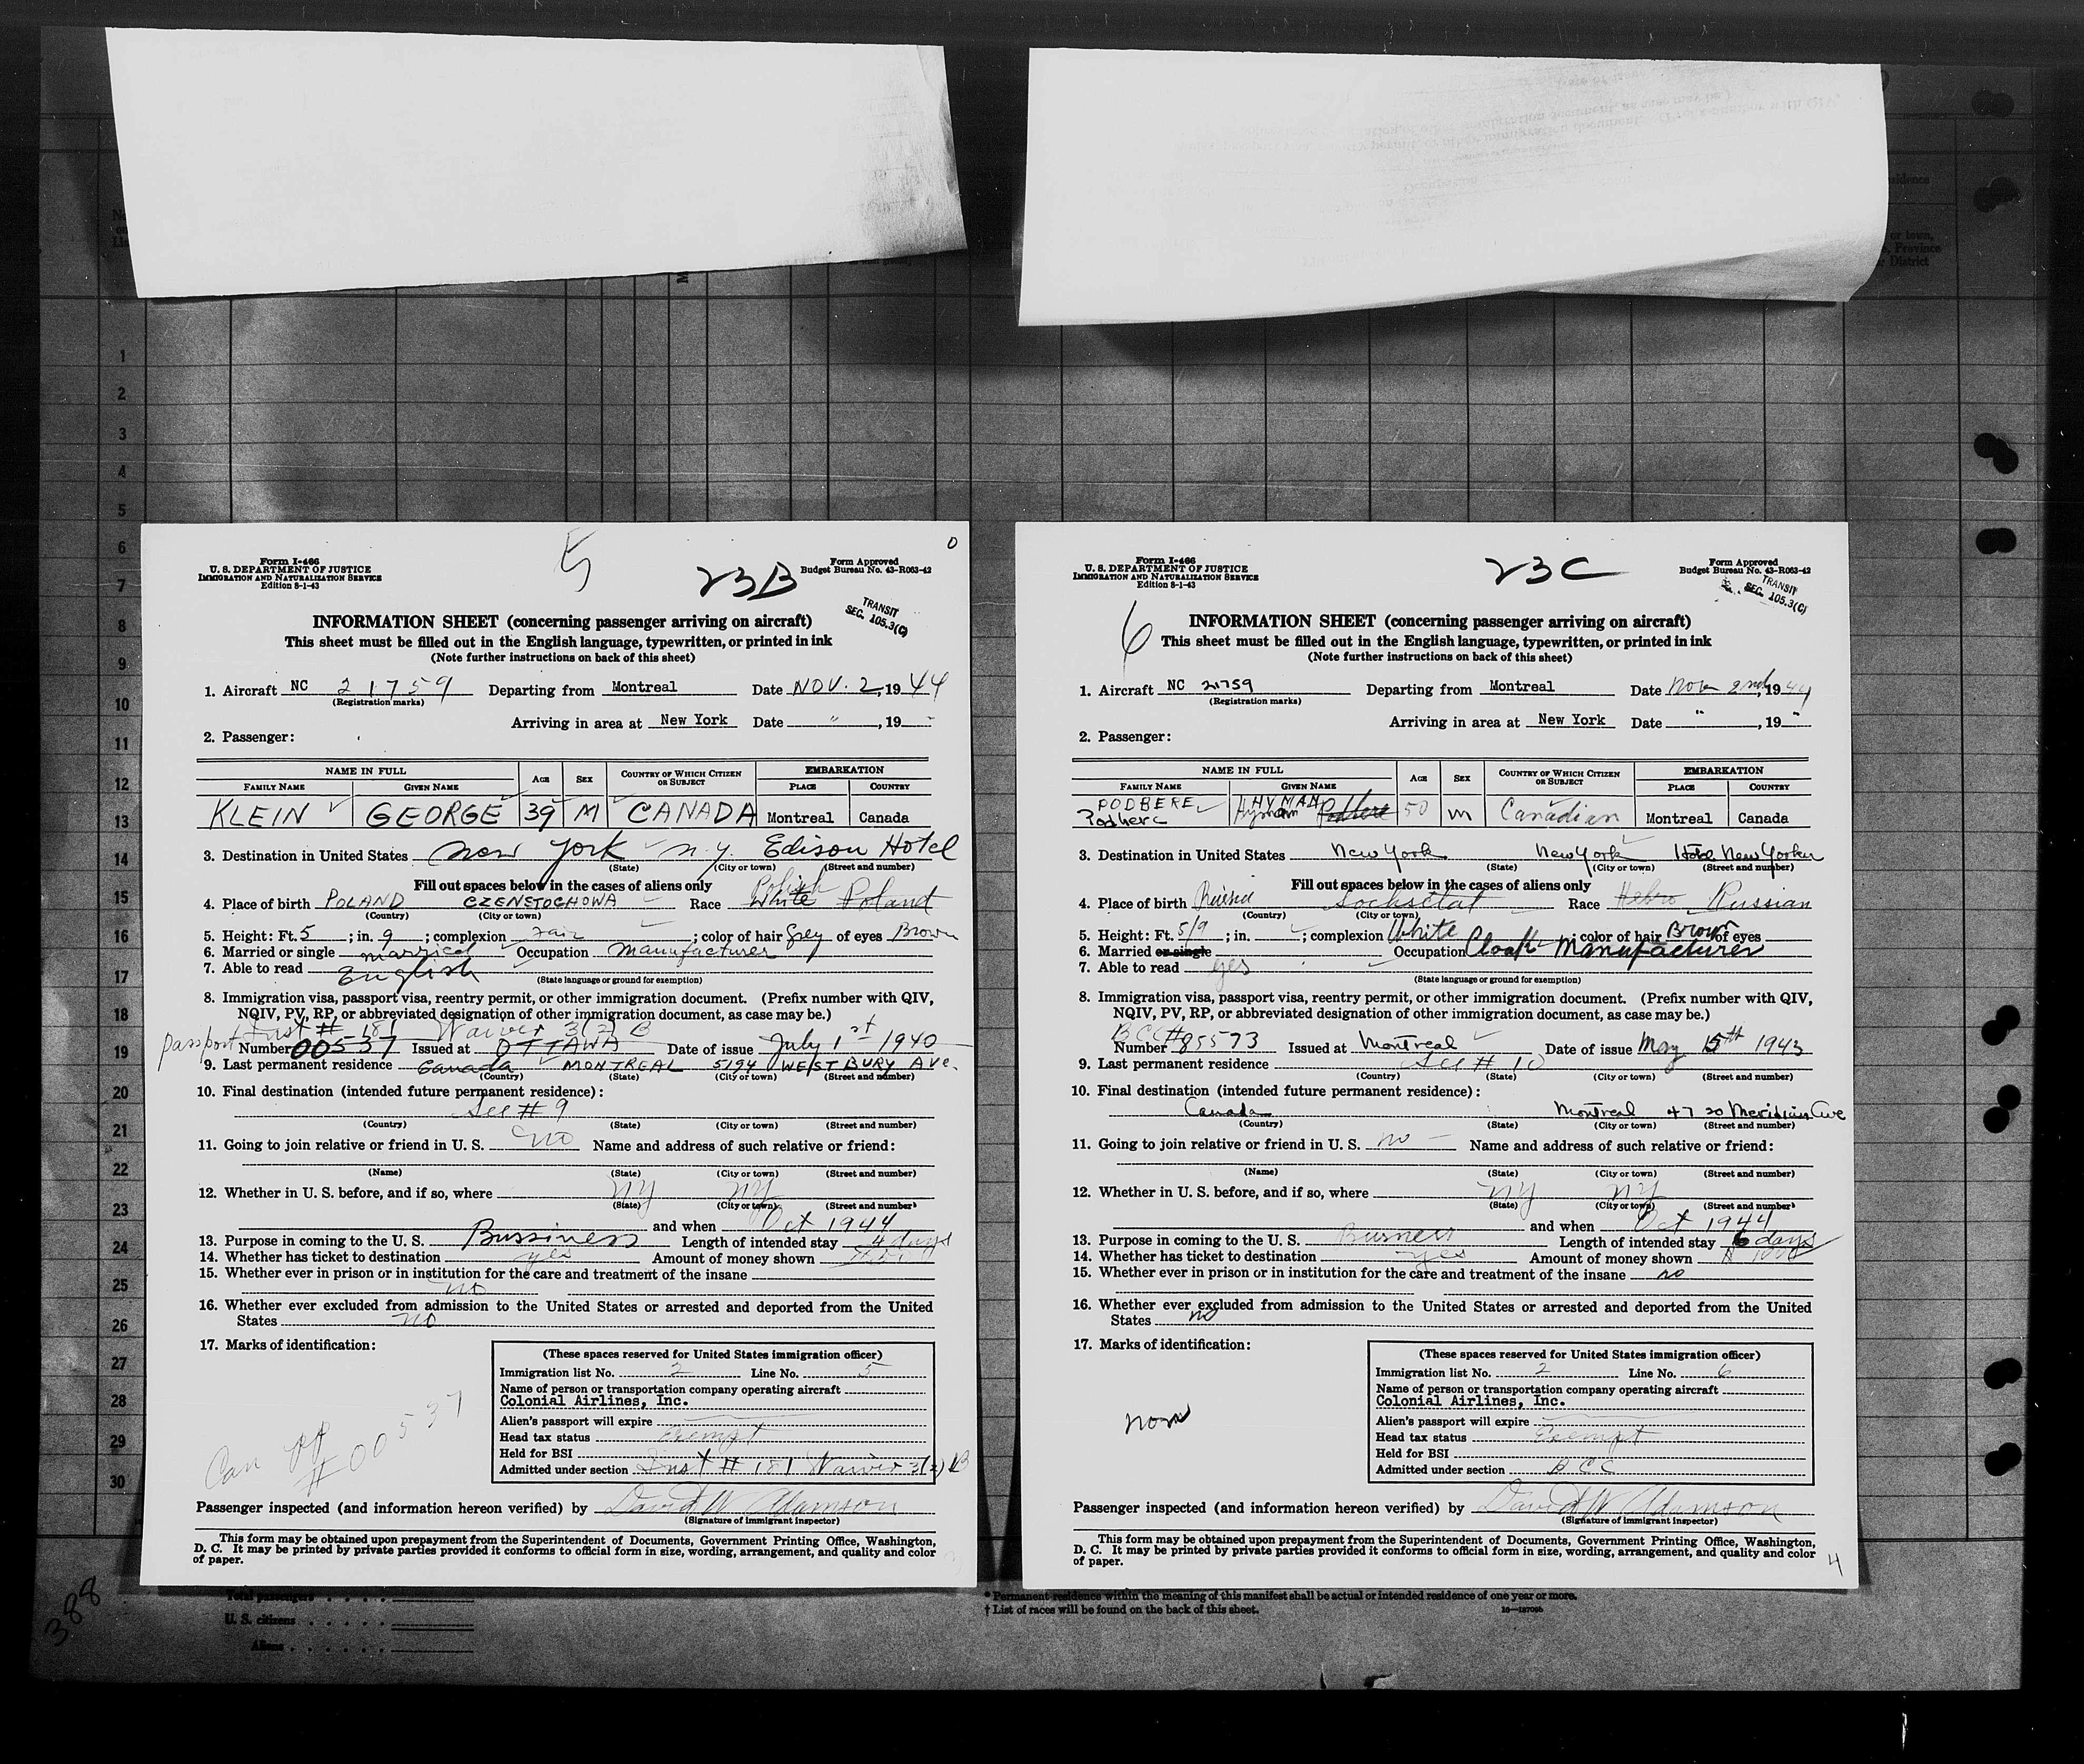 5
0
Form I-466
U. S. DEPARTMENT OF JUSTICE
IMMIGRATION AND NATURALIZATION SERVICE
Edition 8-1-43
23B
Form Approved
Budget Bureau No. 43-R063-42
TRANSIT
SEC. 105.3(C)
INFORMATION SHEET (concerning passenger arriving on aircraft)
This sheet must be filled out in the English language, typewritten, or printed in ink
(Note further instructions on back of this sheet)
1. Aircraft NC 21759 Departing from Montreal Date NOV. 2, 1944
(Registration marks)
Arriving in area at New York Date " , 19
2. Passenger:
NAME IN FULL AGE SEX COUNTRY OF WHICH CITIZEN OR SUBJECT EMBARKATION
FAMILY NAME GIVEN NAME PLACE COUNTRY
KLEIN GEORGE 39 M CANADA Montreal Canada
3. Destination in United States New York N.Y. Edison Hotel
(State) (City or town) (Street and number)
Fill out spaces below in the cases of aliens only
4. Place of birth POLAND CZENSTOCHOWA Race White Polish Poland
(Country) (City or town)
5. Height: Ft. 5 ; in. 9 ; complexion Fair ; color of hair Grey of eyes Brown
6. Married or single married Occupation manufacturer
7. Able to read English
(State language or ground for exemption)
8. Immigration visa, passport visa, reentry permit, or other immigration document. (Prefix number with QIV,
NQIV, PV, RP, or abbreviated designation of other immigration document, as case may be.)
Inst # 181 Waiver 3(2) B
passport Number 00537 Issued at OTTAWA Date of issue July 1st 1940
9. Last permanent residence Canada MONTREAL 5194 WESTBURY AVE.
(Country) (State) (City or town) (Street and number)
10. Final destination (intended future permanent residence):
See # 9
(Country) (State) (City or town) (Street and number)
11. Going to join relative or friend in U. S. no Name and address of such relative or friend:
(Name) (State) (City or town) (Street and number)
12. Whether in U. S. before, and if so, where NY NY
(State) (City or town) (Street and number)
and when Oct 1944
13. Purpose in coming to the U. S. Bussiness Length of intended stay 4 days
14. Whether has ticket to destination yes Amount of money shown
15. Whether ever in prison or in institution for the care and treatment of the insane
no
16. Whether ever excluded from admission to the United States or arrested and deported from the United
States no
17. Marks of identification:
Can PP
# 00537
(These spaces reserved for United States immigration officer)
Immigration list No. 2 Line No. 5
Name of person or transportation company operating aircraft
Colonial Airlines, Inc.
Alien's passport will expire
Head tax status exempt
Held for BSI
Admitted under section Inst # 181 Waiver 3(2) B
Passenger inspected (and information hereon verified) by David W Adamson
(Signature of immigrant inspector)
This form may be obtained upon prepayment from the Superintendent of Documents, Government Printing Office, Washington,
D. C. It may be printed by private parties provided it conforms to official form in size, wording, arrangement, and quality and color
of paper.
Form I-466
U. S. DEPARTMENT OF JUSTICE
IMMIGRATION AND NATURALIZATION SERVICE
Edition 8-1-43
23C
Form Approved
Budget Bureau No. 43-R063-42
TRANSIT
SEC. 105.3(C)
6
INFORMATION SHEET (concerning passenger arriving on aircraft)
This sheet must be filled out in the English language, typewritten, or printed in ink
(Note further instructions on back of this sheet)
1. Aircraft NC 21759 Departing from Montreal Date Nov 2nd, 1944
(Registration marks)
Arriving in area at New York Date " , 19
2. Passenger:
NAME IN FULL AGE SEX COUNTRY OF WHICH CITIZEN OR SUBJECT EMBARKATION
FAMILY NAME GIVEN NAME PLACE COUNTRY
PODBERE HYMAN
Podbere Hyman Podbere 50 M Canadian Montreal Canada
3. Destination in United States New York New York Hotel New Yorker
(State) (City or town) (Street and number)
Fill out spaces below in the cases of aliens only
4. Place of birth Russia Race Hebro Russian
(Country) (City or town)
5. Height: Ft. 5/9 ; in. ; complexion White ; color of hair Brown of eyes
6. Married or single Occupation Cloak Manufacturer
7. Able to read yes
(State language or ground for exemption)
8. Immigration visa, passport visa, reentry permit, or other immigration document. (Prefix number with QIV,
NQIV, PV, RP, or abbreviated designation of other immigration document, as case may be.)
BCC#
Number 85573 Issued at Montreal Date of issue May 15th 1943
9. Last permanent residence See # 10
(Country) (State) (City or town) (Street and number)
10. Final destination (intended future permanent residence):
Canada Montreal 4720 Meridian Ave
(Country) (State) (City or town) (Street and number)
11. Going to join relative or friend in U. S. no Name and address of such relative or friend:
(Name) (State) (City or town) (Street and number)
12. Whether in U. S. before, and if so, where NY NY
(State) (City or town) (Street and number)
and when Oct 1944
13. Purpose in coming to the U. S. Business Length of intended stay 6 days
14. Whether has ticket to destination yes Amount of money shown
15. Whether ever in prison or in institution for the care and treatment of the insane no
16. Whether ever excluded from admission to the United States or arrested and deported from the United
States no
17. Marks of identification:
(These spaces reserved for United States immigration officer)
Immigration list No. 2 Line No. 6
Name of person or transportation company operating aircraft
Colonial Airlines, Inc.
Alien's passport will expire
Head tax status Exempt
Held for BSI
Admitted under section BCC
Passenger inspected (and information hereon verified) by David W Adamson
(Signature of immigrant inspector)
This form may be obtained upon prepayment from the Superintendent of Documents, Government Printing Office, Washington,
D. C. It may be printed by private parties provided it conforms to official form in size, wording, arrangement, and quality and color
of paper.
4
1
2
3
4
5
6
7
8
9
10
11
12
13
14
15
16
17
18
19
20
21
22
23
24
25
26
27
28
29
30
or town,
Province
District
388
Total passengers
U. S. citizens
Aliens
* Permanent residence within the meaning of this manifest shall be actual or intended residence of one year or more.
† List of races will be found on the back of this sheet.